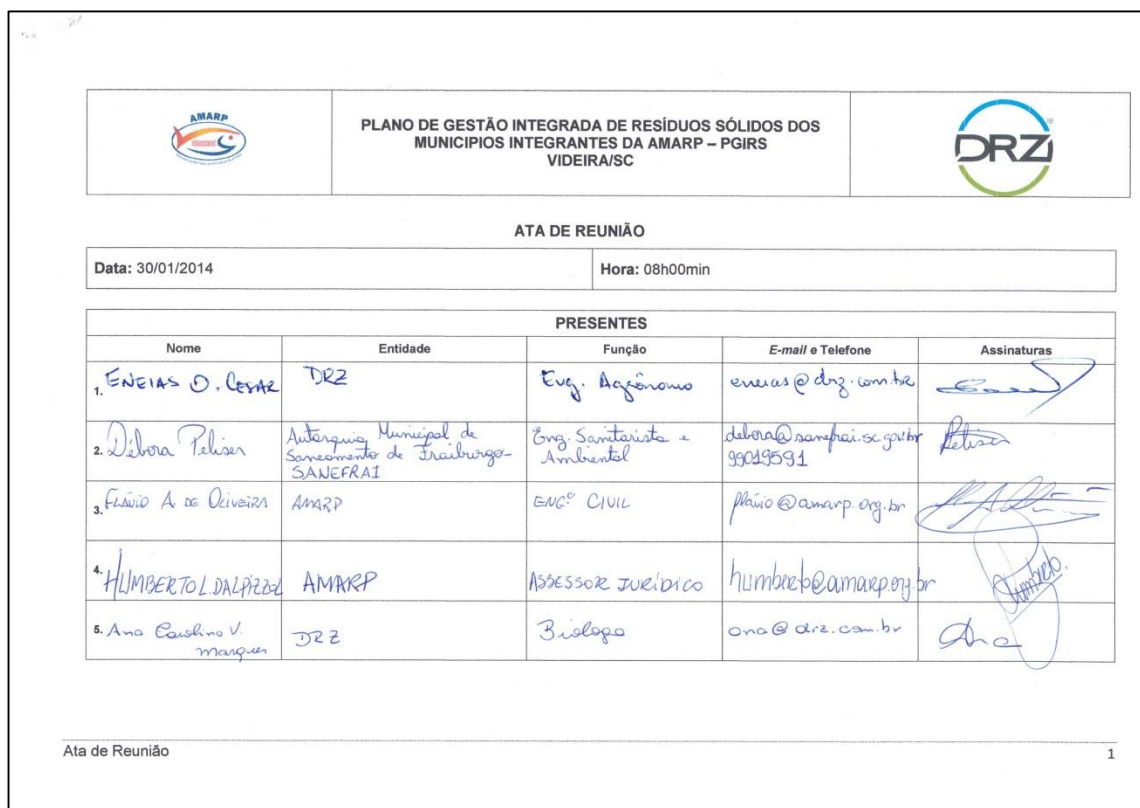 AMARP
PLANO DE GESTÃO INTEGRADA DE RESÍDUOS SÓLIDOS DOS
MUNICIPIOS INTEGRANTES DA AMARP – PGIRS
VIDEIRA/SC
DRZ
ATA DE REUNIÃO
Data: 30/01/2014 Hora: 08h00min
PRESENTES
Nome Entidade Função E-mail e Telefone Assinaturas
1. ENEIAS O. CESAR DRZ Eng. Agrônomo eneias@drz.com.br
2. Débora Peliser Autarquia Municipal de
Saneamento de Fraiburgo-
SANEFRAI Eng. Sanitarista e
Ambiental debora@sanefrai.sc.gov.br
99019591 Peliser
3. FLÁVIO A. DE OLIVEIRA AMARP ENGº CIVIL flávio@amarp.org.br
4. HUMBERTO L. DALPIZZOL AMARP ASSESSOR JURÍDICO humberto@amarp.org.br Humberto.
5. Ana Carolina V.
Marques DRZ Bióloga ana@drz.com.br Ana
Ata de Reunião 1